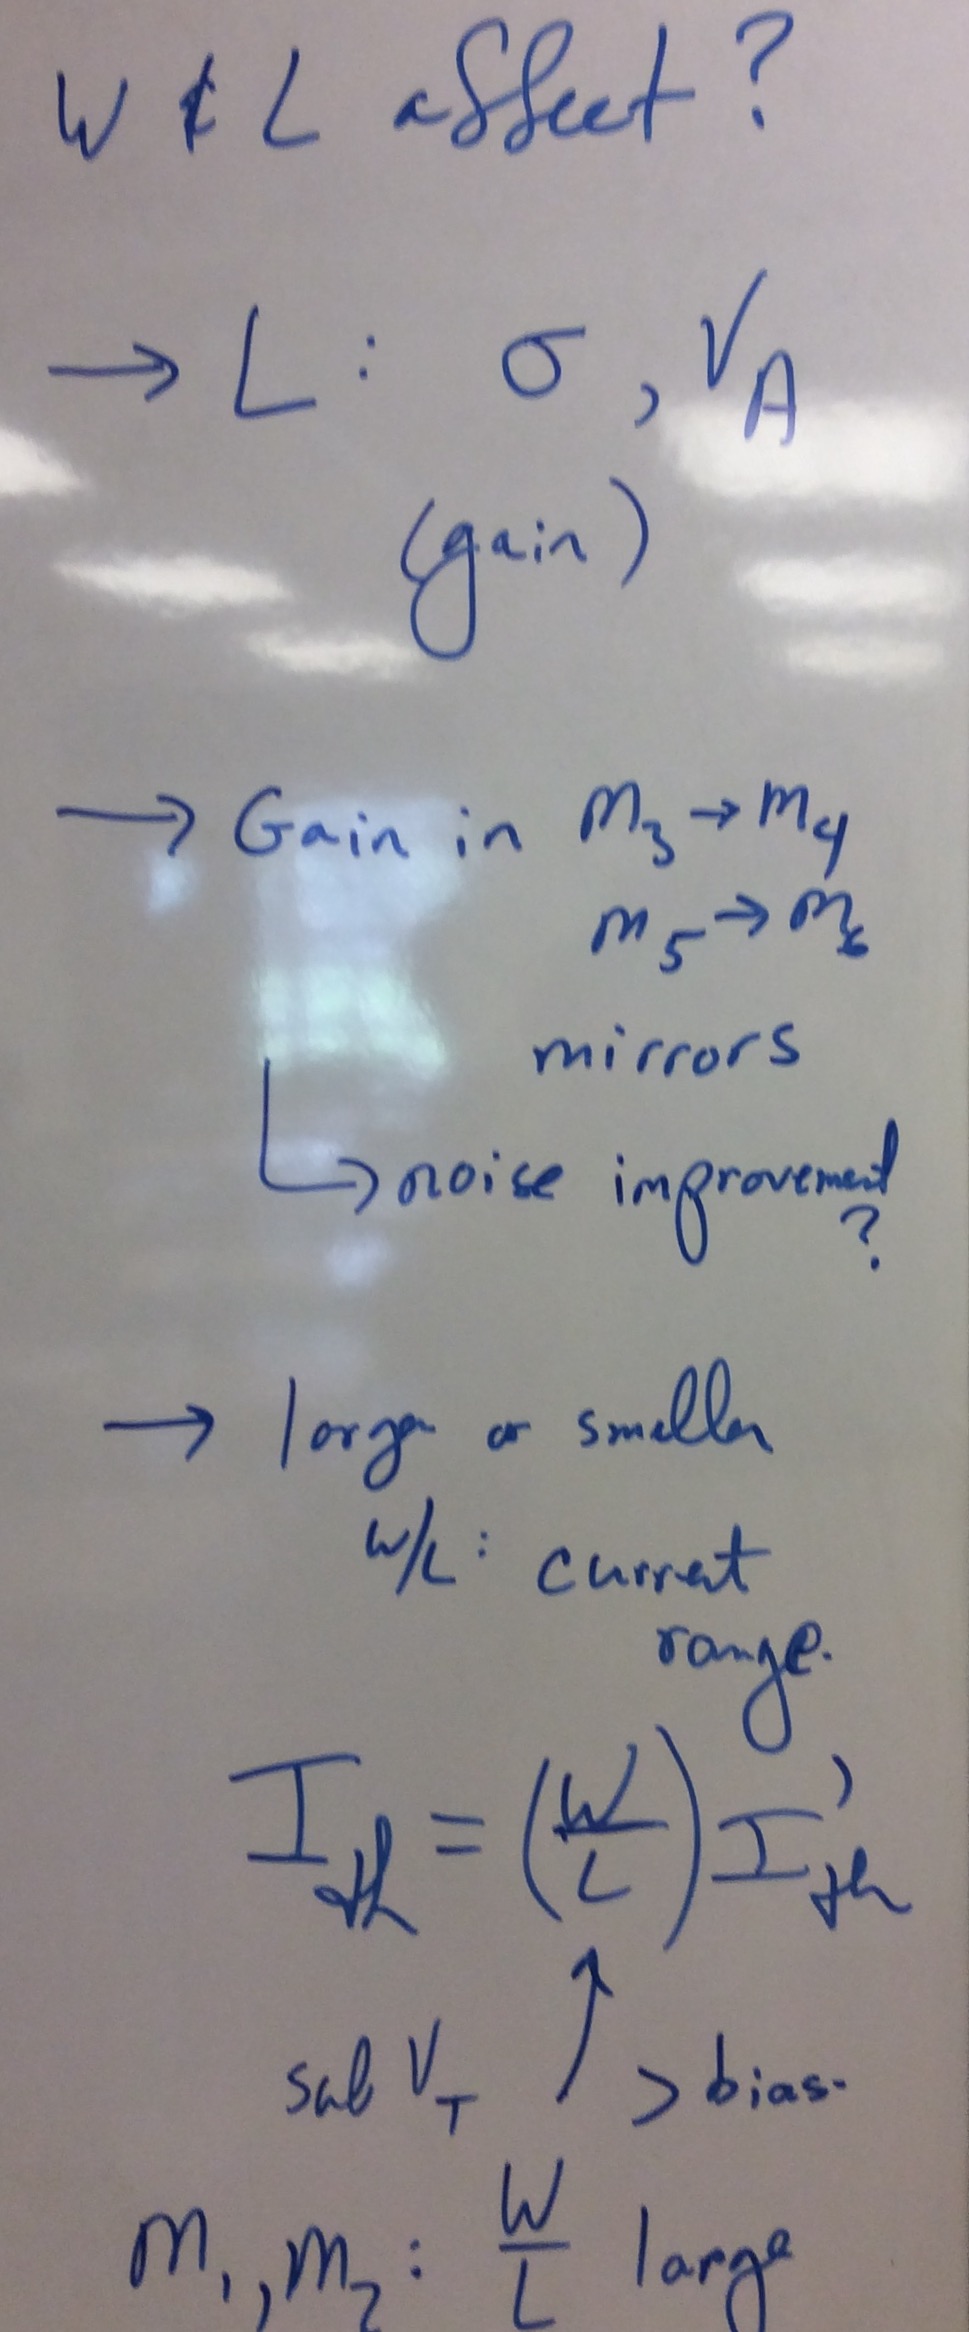 W & L affect?
→ L: σ, V_A
(gain)
→ Gain in M₃ → M₄
M₅ → M₆
mirrors
↳ noise improvement
?
→ larger or smaller
W/L: current
range.
I_th = (W/L) I'_th
sub V_T ↑ > bias.
M₁, M₂: W/L large